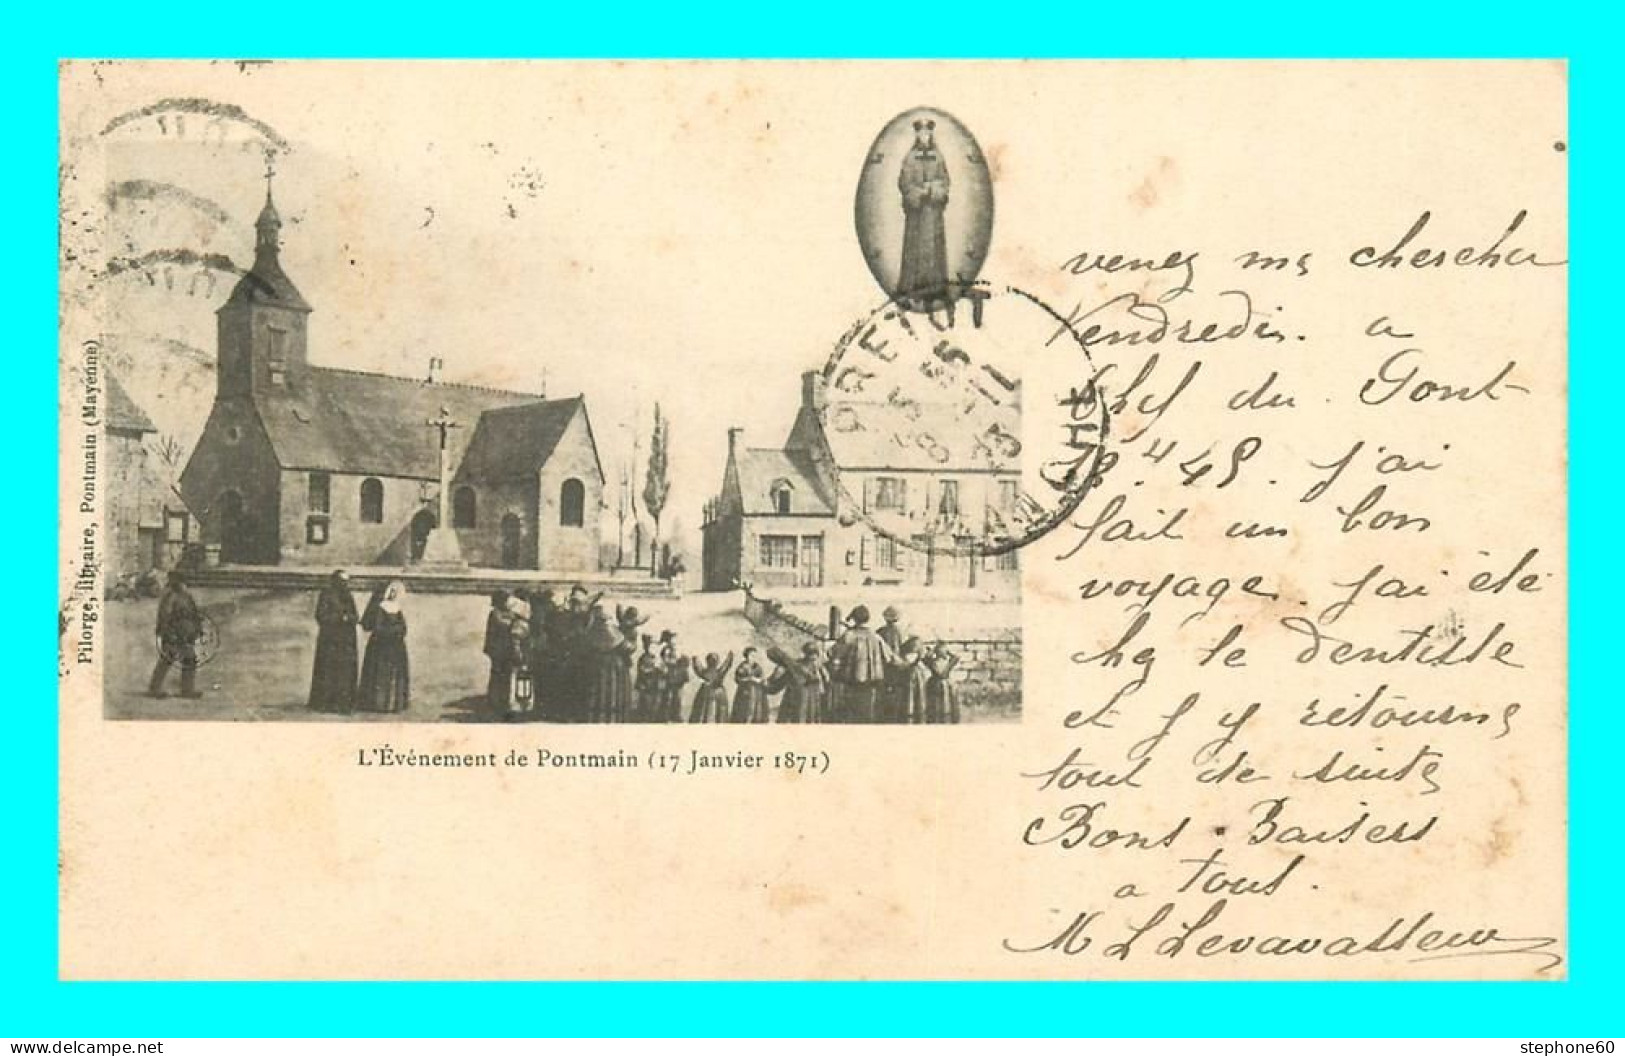 Pilorge, libraire, Pontmain (Mayenne)
L'Événement de Pontmain (17 Janvier 1871)
BRETOT
MANCHE
venez me chercher
Vendredi. a
Chef du Pont
45. j'ai
fait un bon
voyage. j'ai été
chez le dentiste
et j y retourne
tout de suite
Bons Baisers
a tous.
M L Levavasseur
www.delcampe.net
stephone60